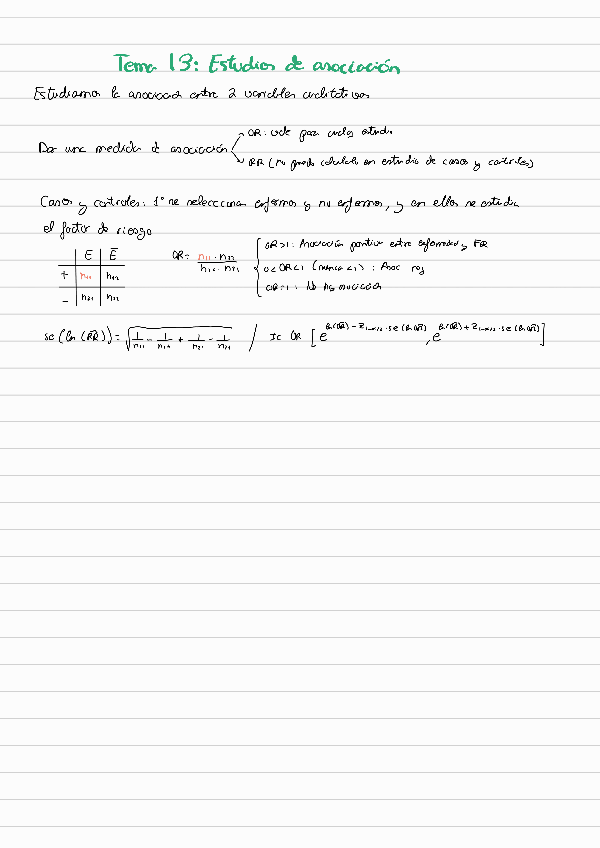 Tema 13: Estudios de asociación
Estudiamos la asociación entre 2 variables cualitativas
OR: vale para cualquier estudio
Dar una medida de asociación
RR (no puedo calcularlo en estudio de casos y controles)
Casos y controles: 1º se seleccionan enfermos y no enfermos, y en ellos se estudia
el factor de riesgo
E Ē
+ n₁₁ n₁₂
- n₂₁ n₂₂
OR = n₁₁ · n₂₂ / n₁₂ · n₂₁
OR>1: Asociación positiva entre enfermedad y FR
0<OR<1 : Asoc neg
OR=1 : No hay asociación
se(ln(RR)) = √(1/n₁₁ - 1/n₁₊ + 1/n₂₁ - 1/n₂₊) / IC OR [e^(ln(OR) - Z₁₋α/₂ · se(ln OR)), e^(ln(OR) + Z₁₋α/₂ · se(ln OR))]